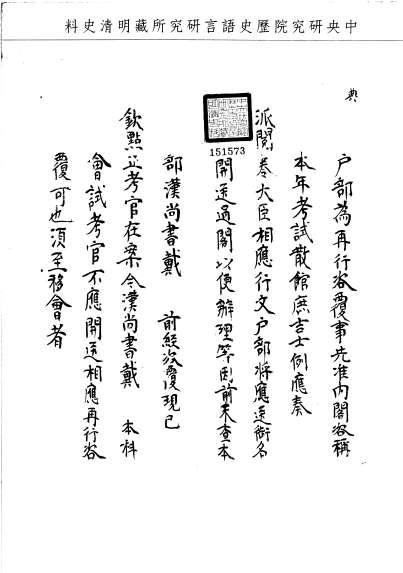 中央研究院歷史語言研究所藏明清史料
典
戶部為再行咨覆事先准內閣咨稱
本年考試散館庶吉士例應奏
派閱卷大臣相應行文戶部將應送銜名
151573
開送過閣以便辦理等因前來查本
部漢尚書戴 前經咨覆現已
欽點正考官在案今漢尚書戴 本科
會試考官不應開送相應再行咨
覆可也須至移會者